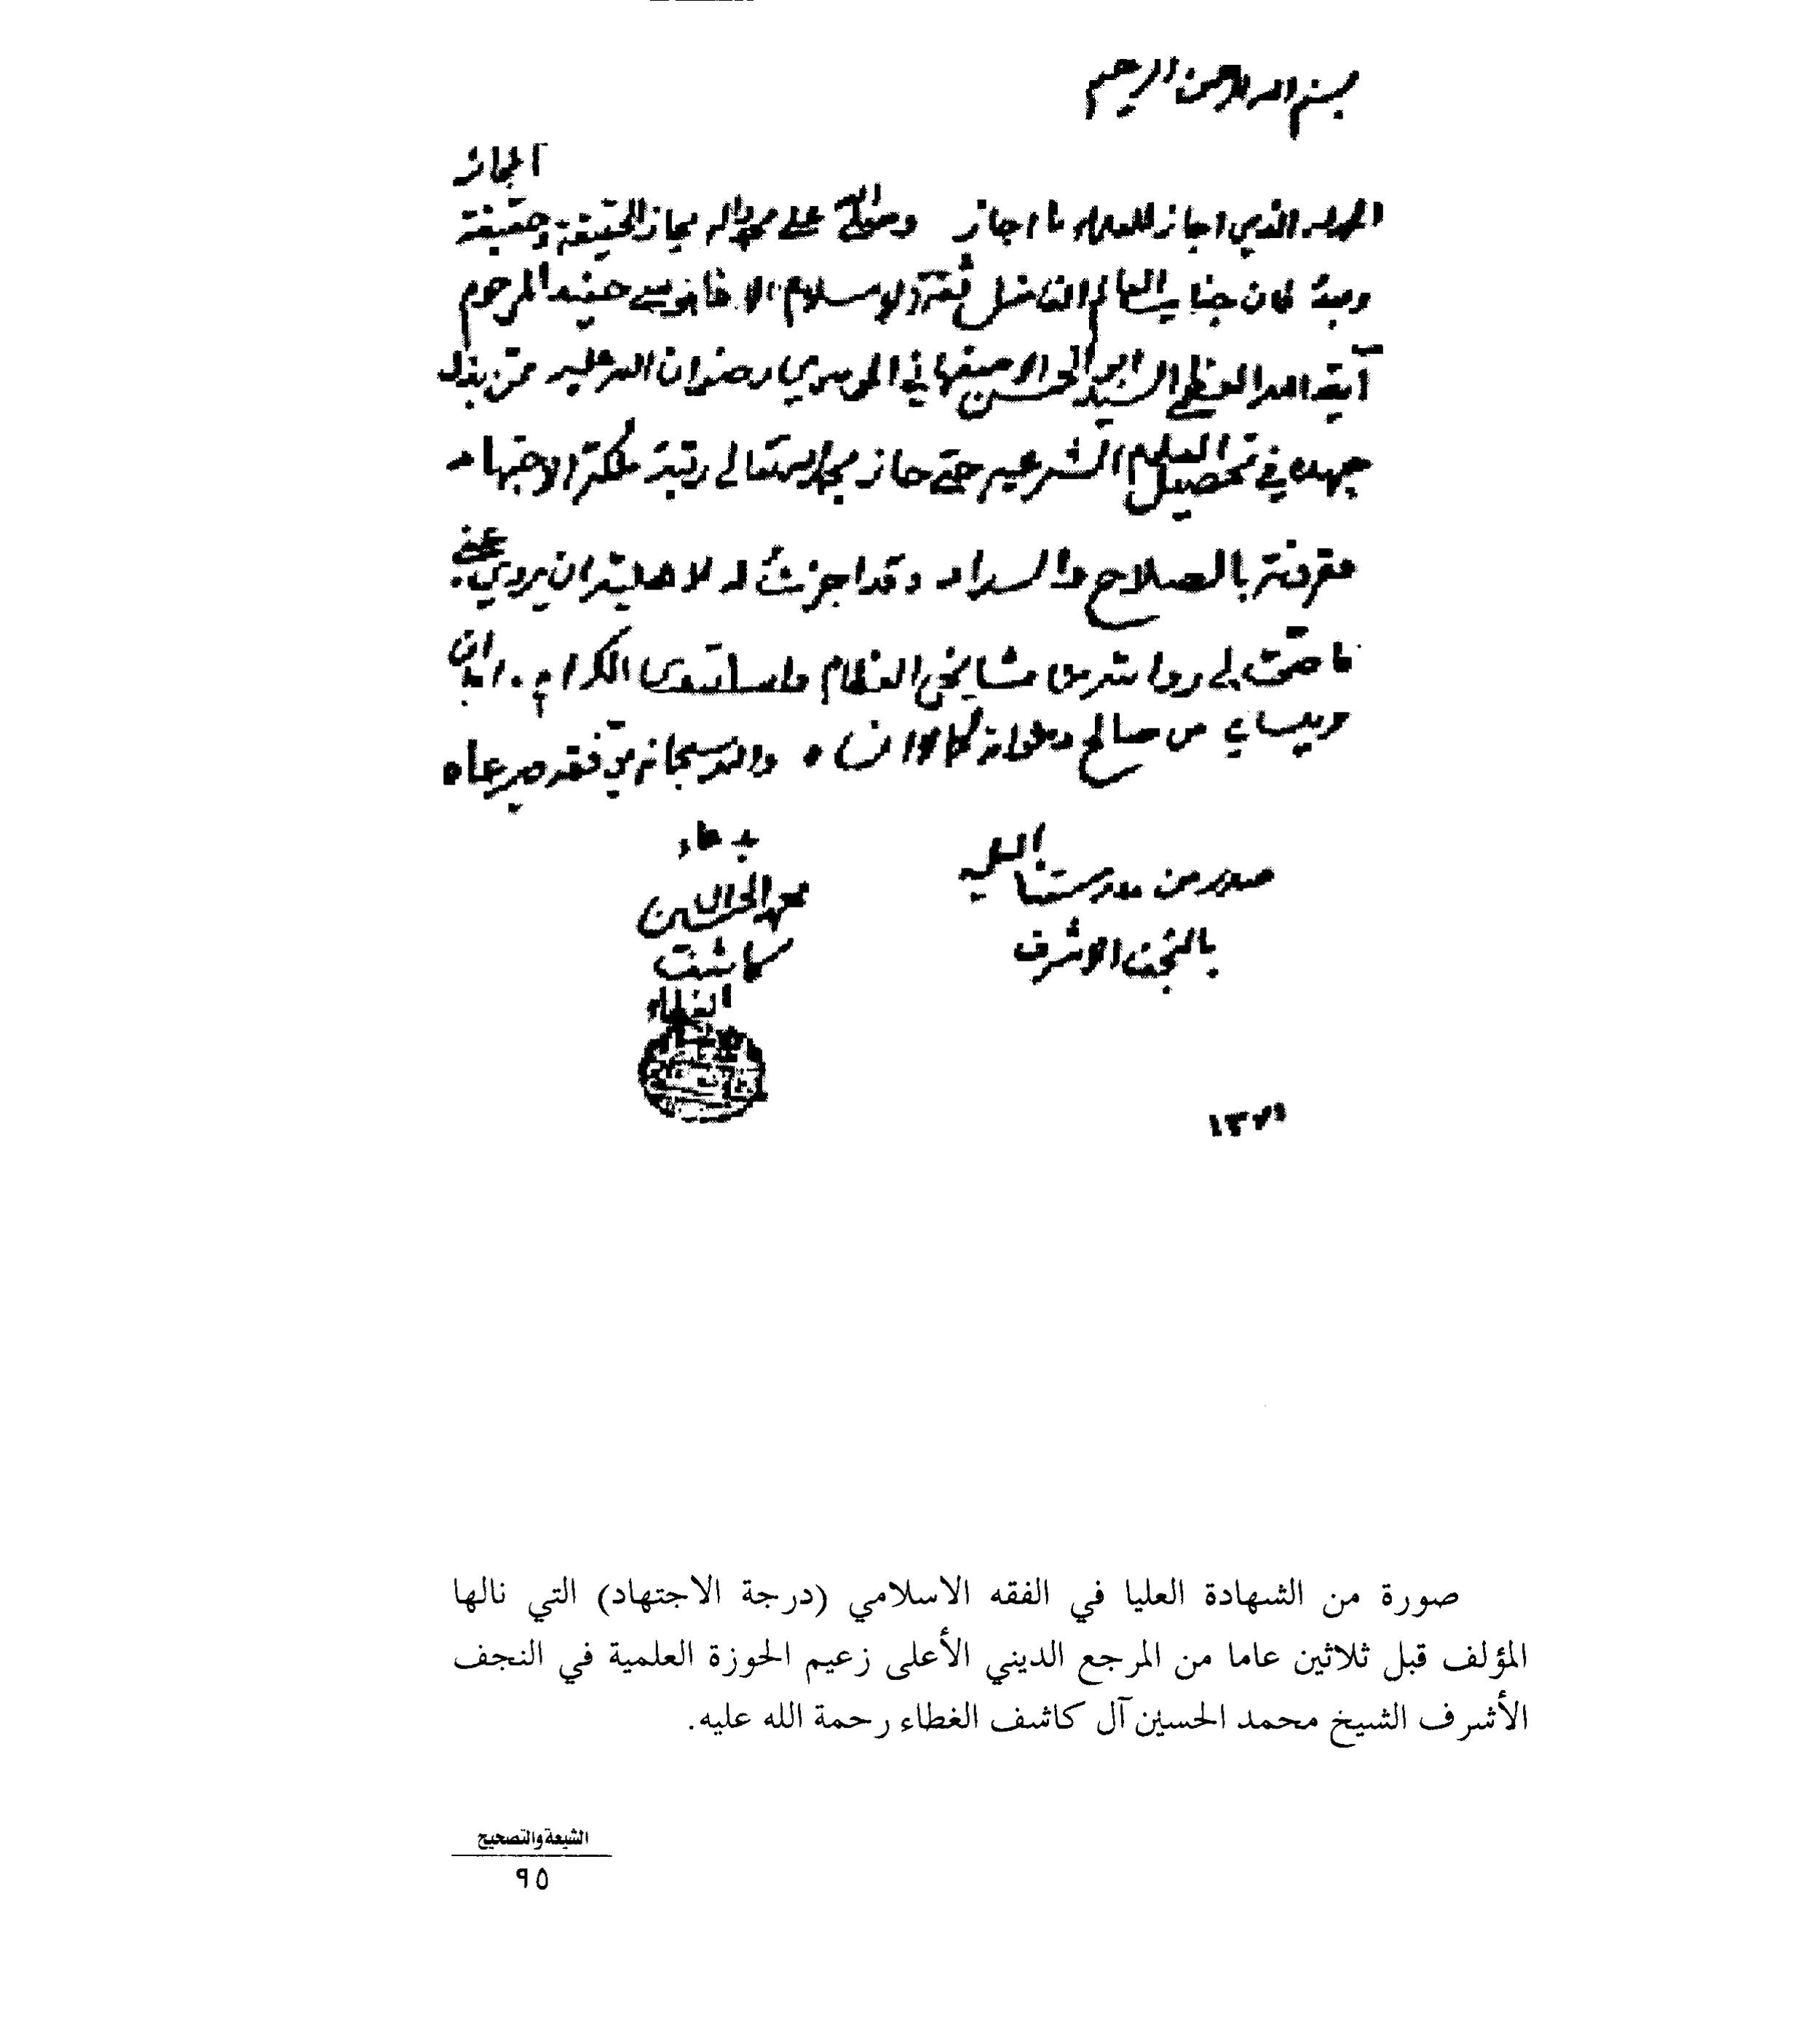 بسم الله الرحمن الرحيم
المجاز
الحمد لله الذي اجاز للعلماء ما اجاز وصلى الله على محمد واله مجاز الحقيقة وحقيقة
وبعد فان جناب العالم الفاضل ثقة الاسلام الاغا موسى حفيد المرحوم
آية الله العظمى السيد ابو الحسن الاصفهاني الموسوي رضوان الله عليه ممن بذل
جهده في تحصيل العلوم الشرعيه حتى حاز بحمده تعالى رتبة ملكة الاجتهاد
مقرونة بالصلاح والسداد وقد اجزت له لاهليته ان يروي عني
ما صحت لي روايته من مشايخي العظام واساتيدي الكرام
من صالح والله سبحانه يوفقه ويرعاه
صدر من مدرستنا العلميه
بالنجف الاشرف
بدعاء
محمد الحسين
كاشف
الغطاء
صورة من الشهادة العليا في الفقه الاسلامي (درجة الاجتهاد) التي نالها
المؤلف قبل ثلاثين عاما من المرجع الديني الأعلى زعيم الحوزة العلمية في النجف
الأشرف الشيخ محمد الحسين آل كاشف الغطاء رحمة الله عليه.
الشيعة والتصحيح
٩٥